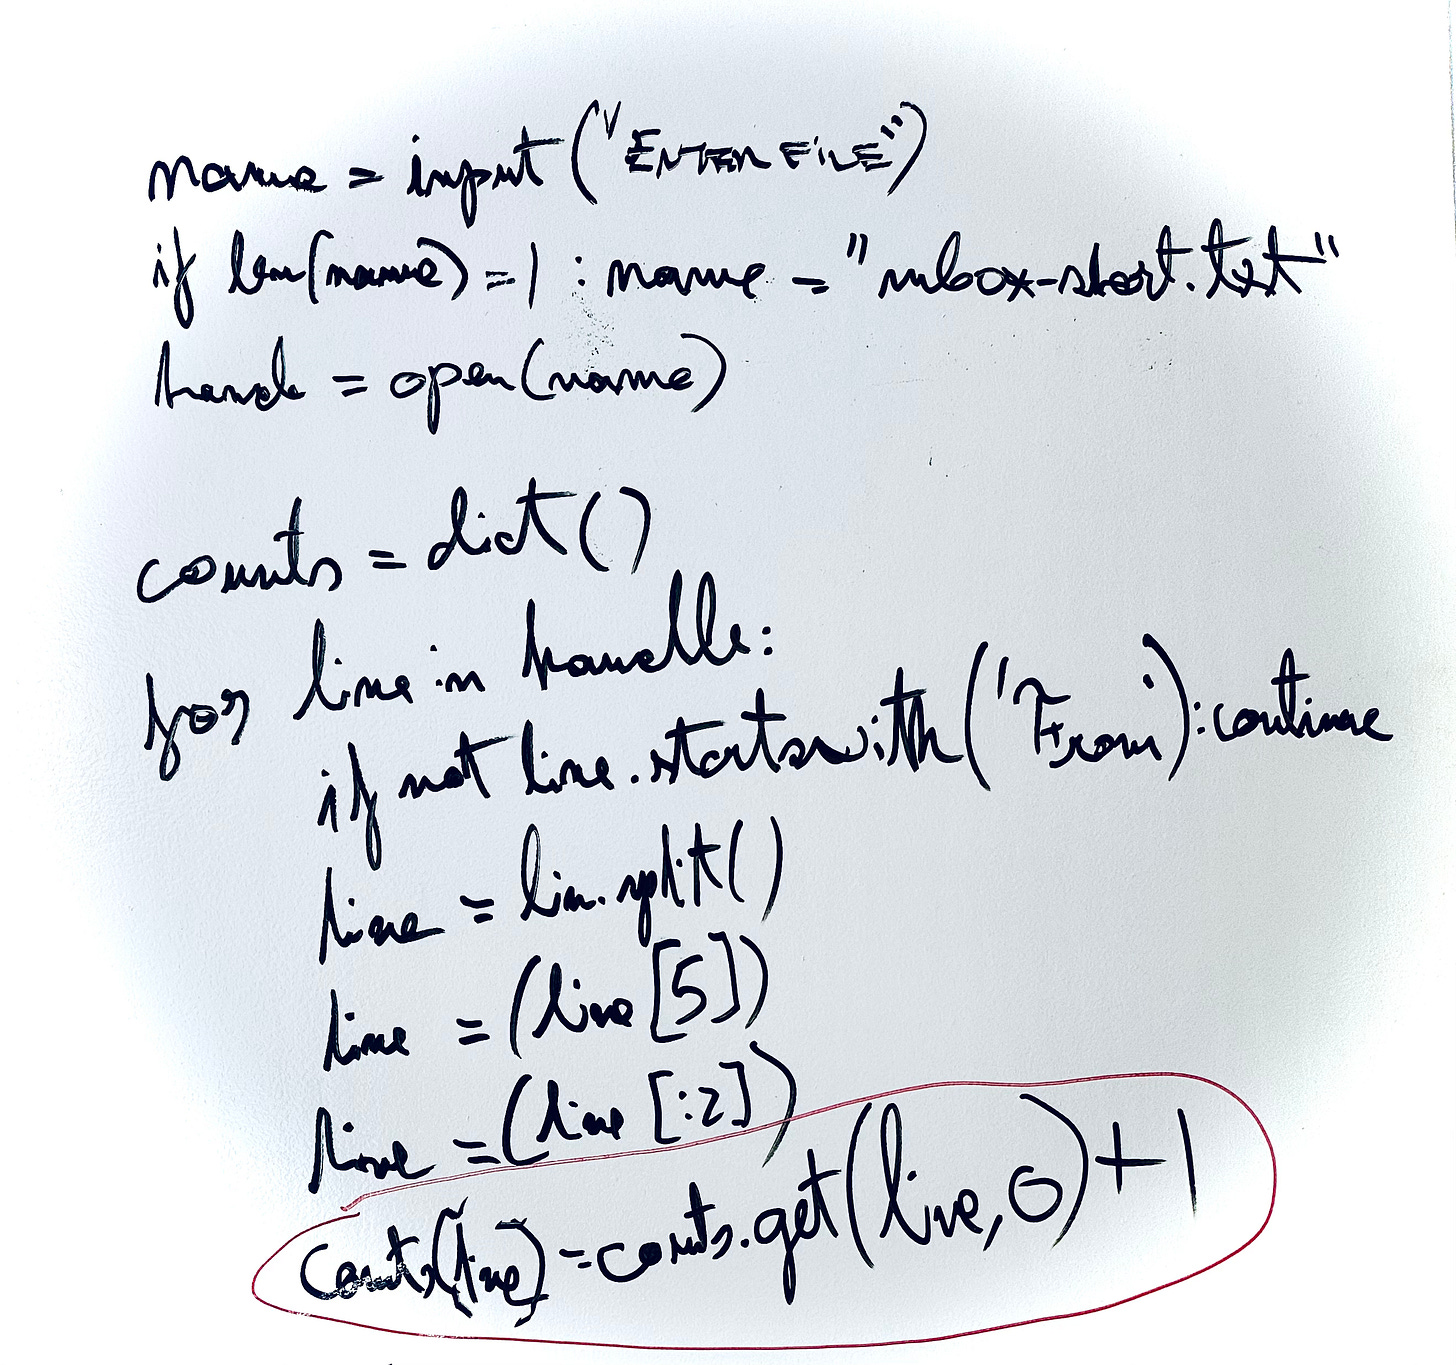 name = input("ENTER FILE")
if len(name) = 1 : name = "mbox-short.txt"
handle = open(name)
counts = dict()
for line in handle:
if not line.startswith('From'):continue
line = lin.split()
line = (line[5])
line = (line[:2])
counts[line] = counts.get(line, 0) + 1